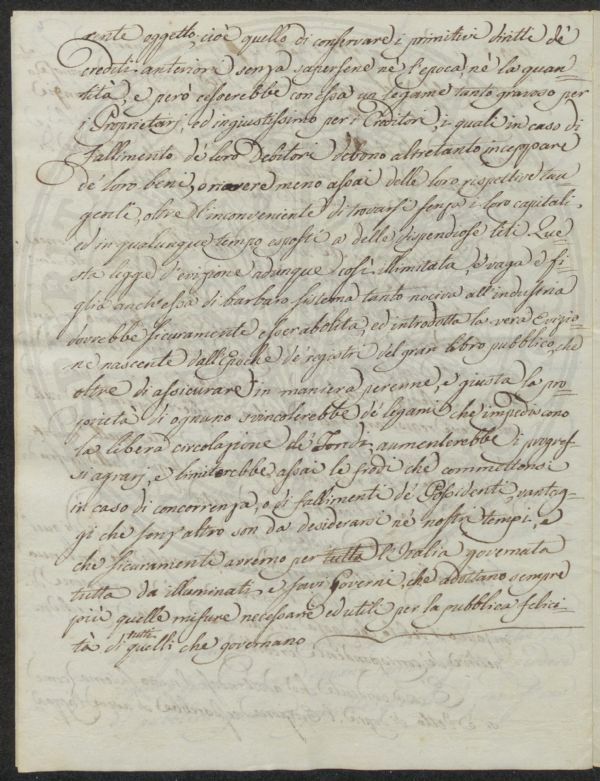 rente oggetto, cioè quello di conservare i primitivi diritti de'
crediti anteriori senza sapersene nè l'epoca, nè la quan=
tità, e però cesserebbe con essa un legame tanto gravoso per
i Proprietarj, ed ingiustissimo per i Creditori, i quali in caso di
fallimento de' loro Debitori debono altretanto inceppare
de' loro beni, o ricevere meno assai delle loro rispettive tan=
genti, oltre l'inconveniente di trovarsi senza i loro capitali,
ed in qualunque tempo esposti a delle dispendiose liti. Que=
sta legge d'evizione adunque così illimitata, e vaga e fi=
glia anch'essa di barbaro sistema tanto nociva all'industria
dovrebbe sicuramente esser abolita, ed introdotta la vera Evizio=
ne nascente dall'Epoche de' registri del gran libro pubblico, che
oltre di assicurare in maniera perenne, e giusta la pro=
prietà di ognuno svincolerebbe de' legami che impediscono
la libera circolazione de' Fondi, aumenterebbe i progres=
si agrarj, e limiterebbe assai le frodi che commettonsi
in caso di concorrenza, o di fallimenti de' Possidenti, vantag=
gi che senz'altro son da desiderarsi ne' nostri tempi, e
che sicuramente avremo per tutta l'Italia governata
tutta da illuminati, e savi Governi, che adottano sempre
più quelle misure necessarie ed utili per la pubblica felici=
tà di tutti quelli che governano